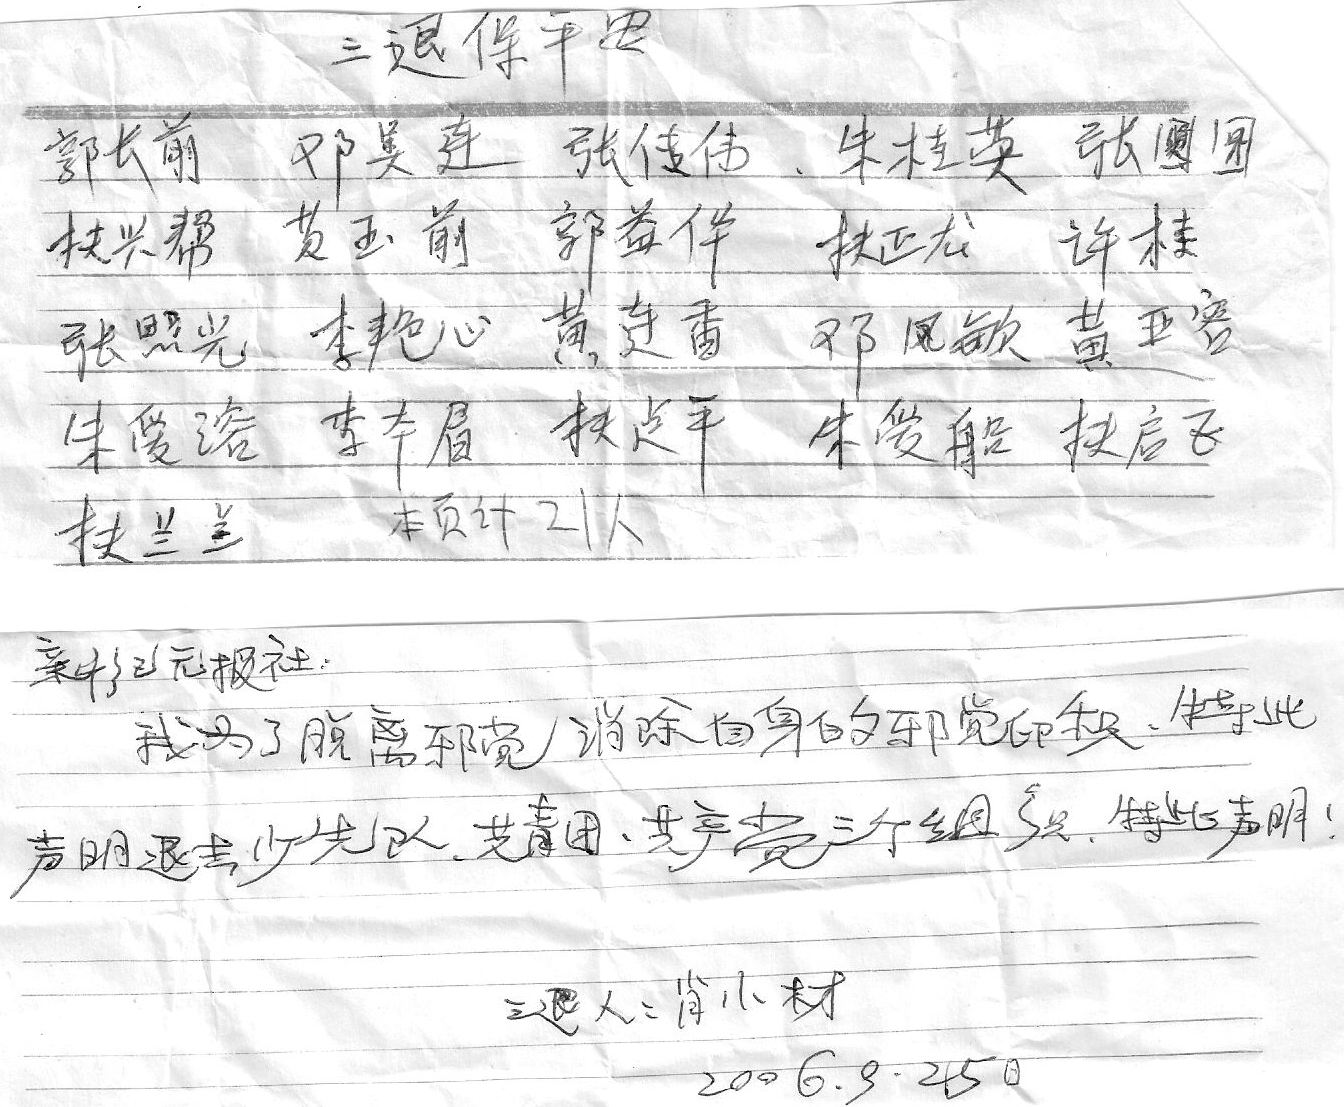 三退保平安
郭长前 邓美连 张佳伟、朱桂英 张圆圆
扶兴帮 黄玉前 郭益伴 扶正龙 许桂
张照光 李艳心 黄连香 邓凤敏 黄亚容
朱爱溶 李本眉 扶贞平 朱爱船 扶启飞
扶兰兰 本页计21人
亲 纪元报社:
我为了脱离邪党,消除自身的邪党印积、特此
声明退去少先队、共青团、共产党三个组织、特此声明!
三退人:肖小材
2006.9.25日